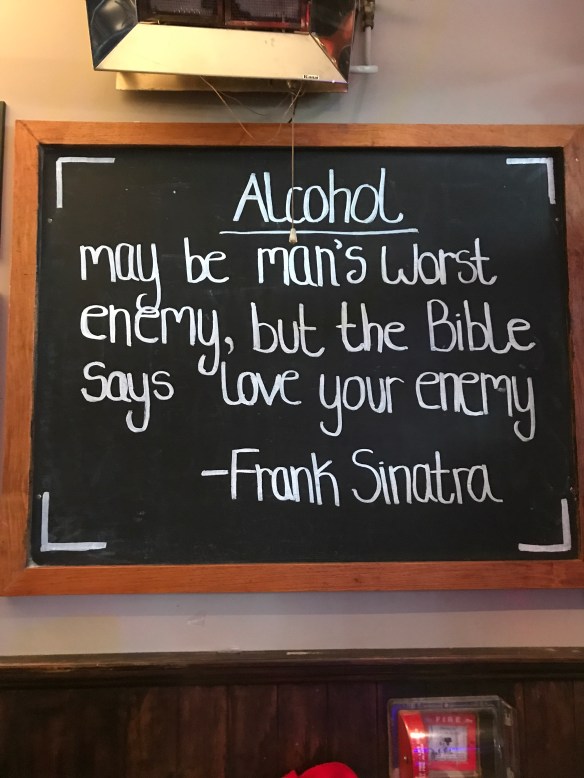 Alcohol
may be man's worst
enemy, but the Bible
says love your enemy
-Frank Sinatra
FIRE